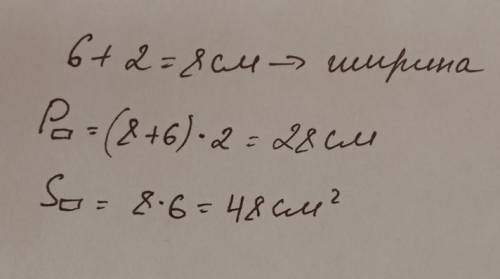 6 + 2 = 8 см → ширина
P▭ = (8+6) · 2 = 28 см
S▭ = 8 · 6 = 48 см²